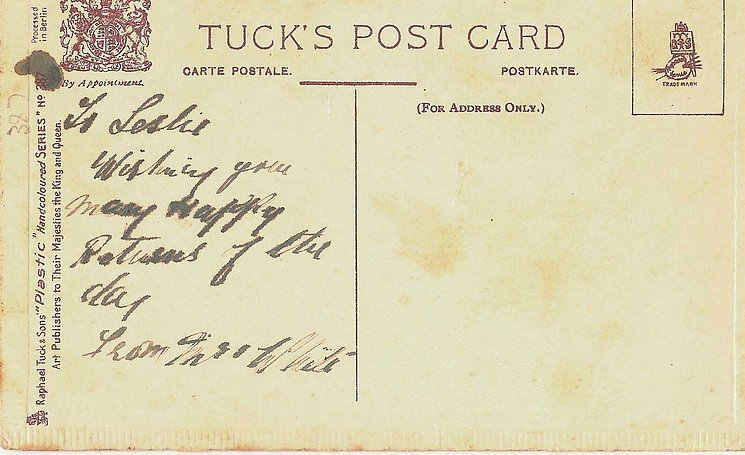 TUCK'S POST CARD
CARTE POSTALE.
POSTKARTE.
By Appointment.
(FOR ADDRESS ONLY.)
TRADE MARK
To Leslie
Wishing you
many Happy
Returns of the
day
From Mrs White
Raphael Tuck & Sons' "Plastic" Handcoloured SERIES" No
Art Publishers to Their Majesties the King and Queen.
Processed
in Berlin